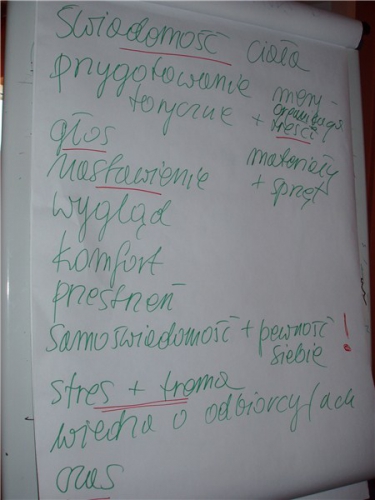 świadomość ciała
przygotowanie mery-
torycznie + organizacja
treści
głos
nastawienie
materiały
+ sprzęt
wygląd
komfort
przestrzeń
samoświadomość + pewność
siebie !
stres + trema
wiedza o odbiorcy/ach
czas